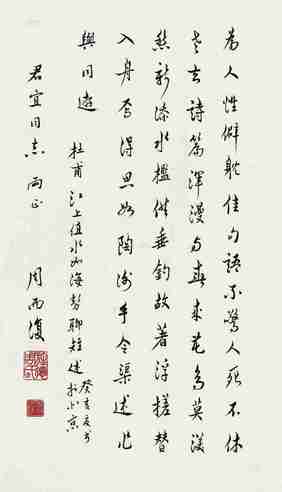 為人性僻躭佳句語不驚人死不休
老去詩篇渾漫与春來花鳥莫深
愁新添水檻供垂釣故著浮槎替
入舟焉得思如陶謝手令渠述作
與同遊 杜甫江上值水如海勢聊短述 癸亥夏书
於北京
君宜同志 两正 周而復